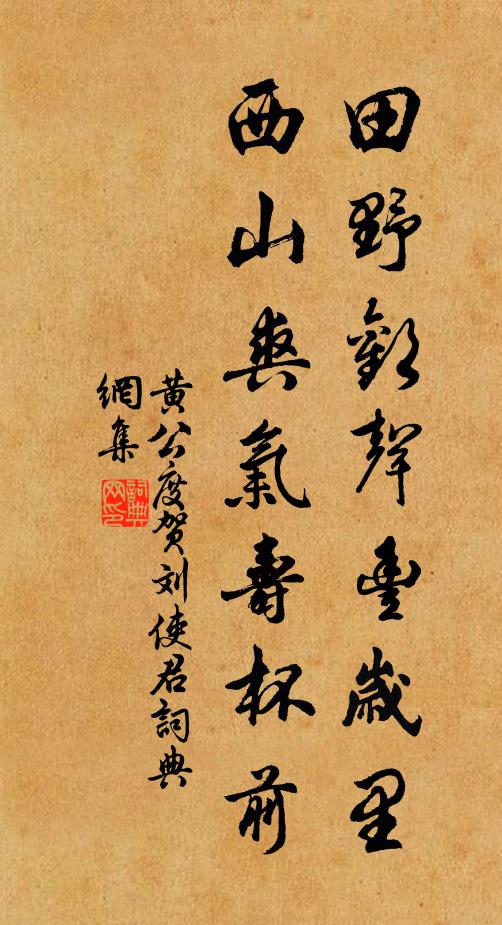 田野歡聲豐歲里
西山爽氣壽杯前
黄公度贺刘使君詞典
網集
詞典
网印